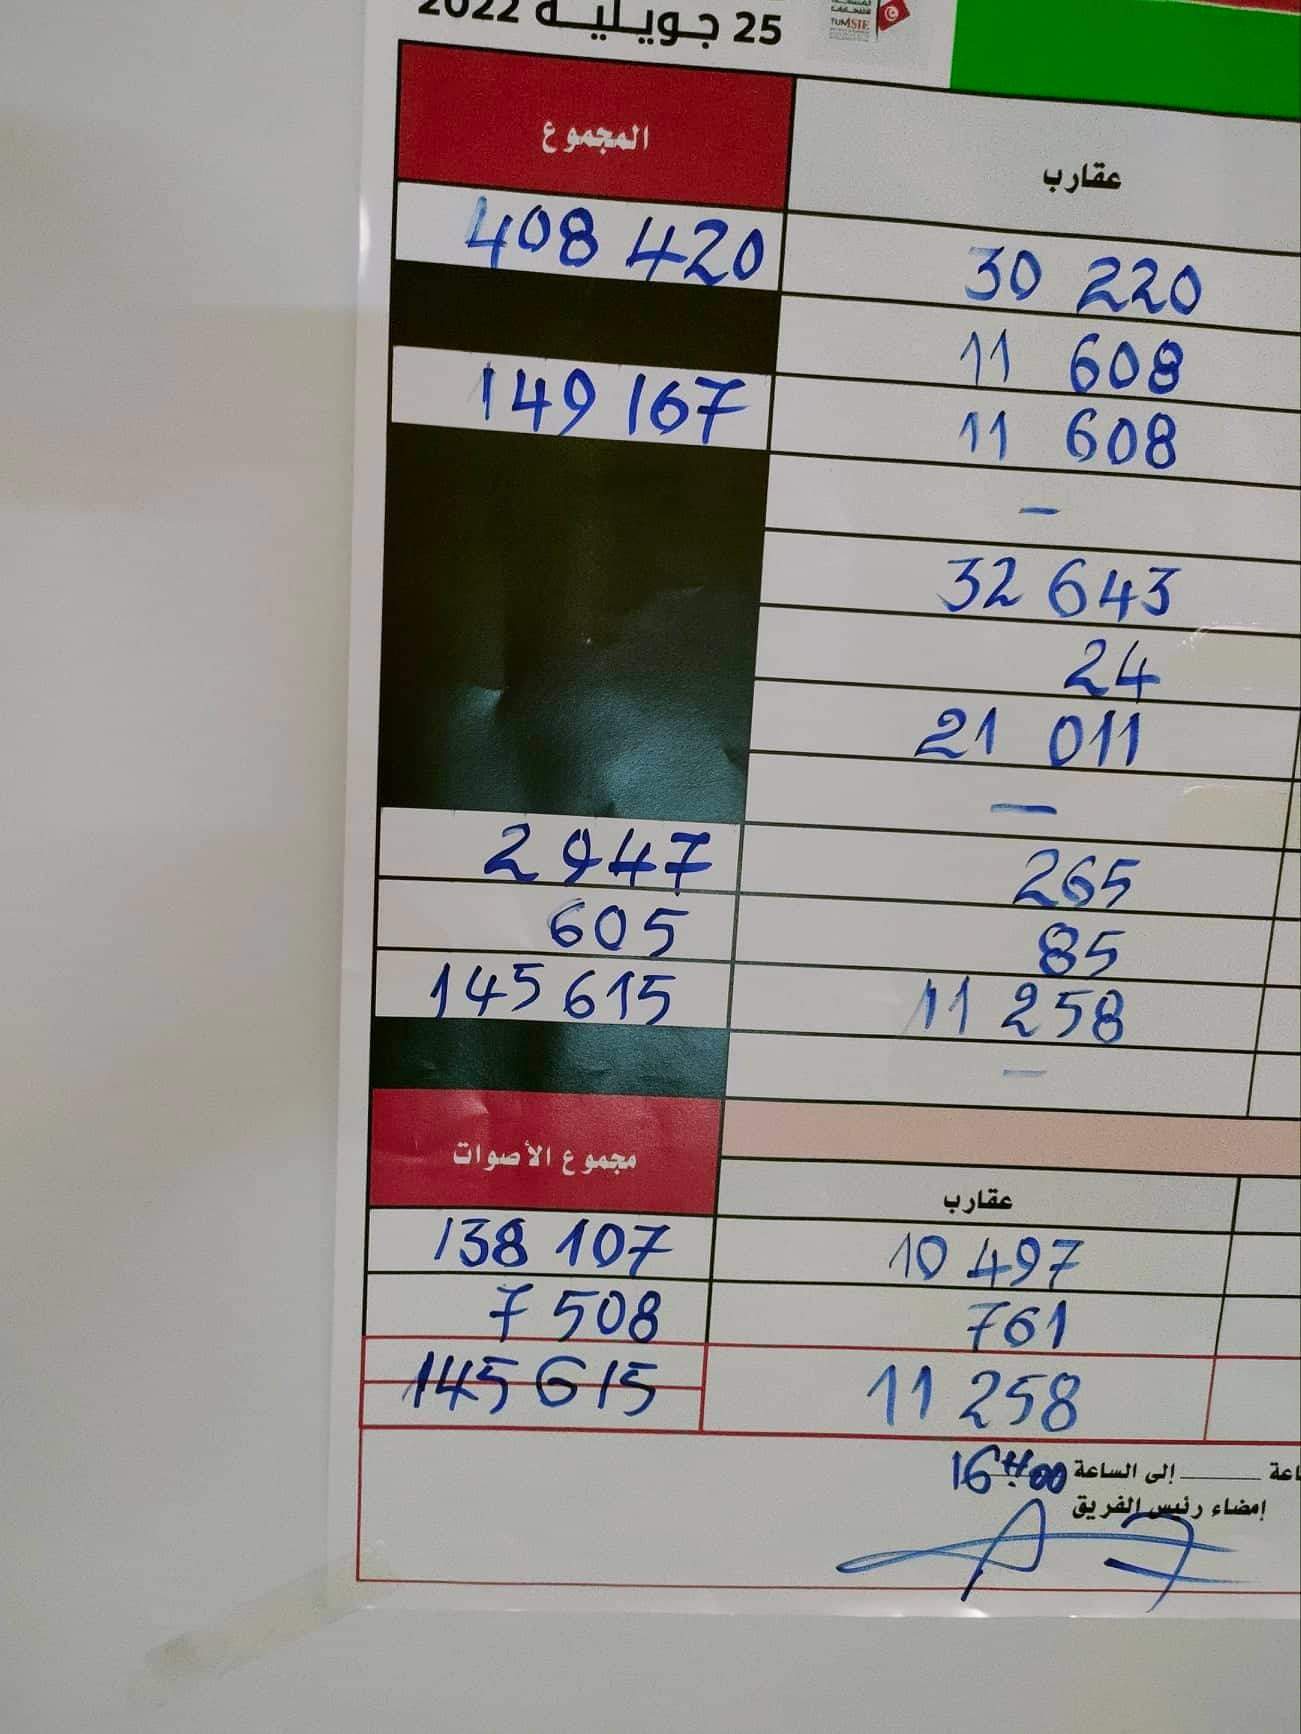 25 جويلية 2022
TUNISIE
عقارب المجموع
30 220 408 420
11 608
11 608 149 167
–
32 643
24
21 011
–
265 2 947
85 605
11 258 145 615
–
مجموع الأصوات
عقارب
10 497 138 107
761 7 508
11 258 145 615
إلى الساعة 16H00
إمضاء رئيس الفريق